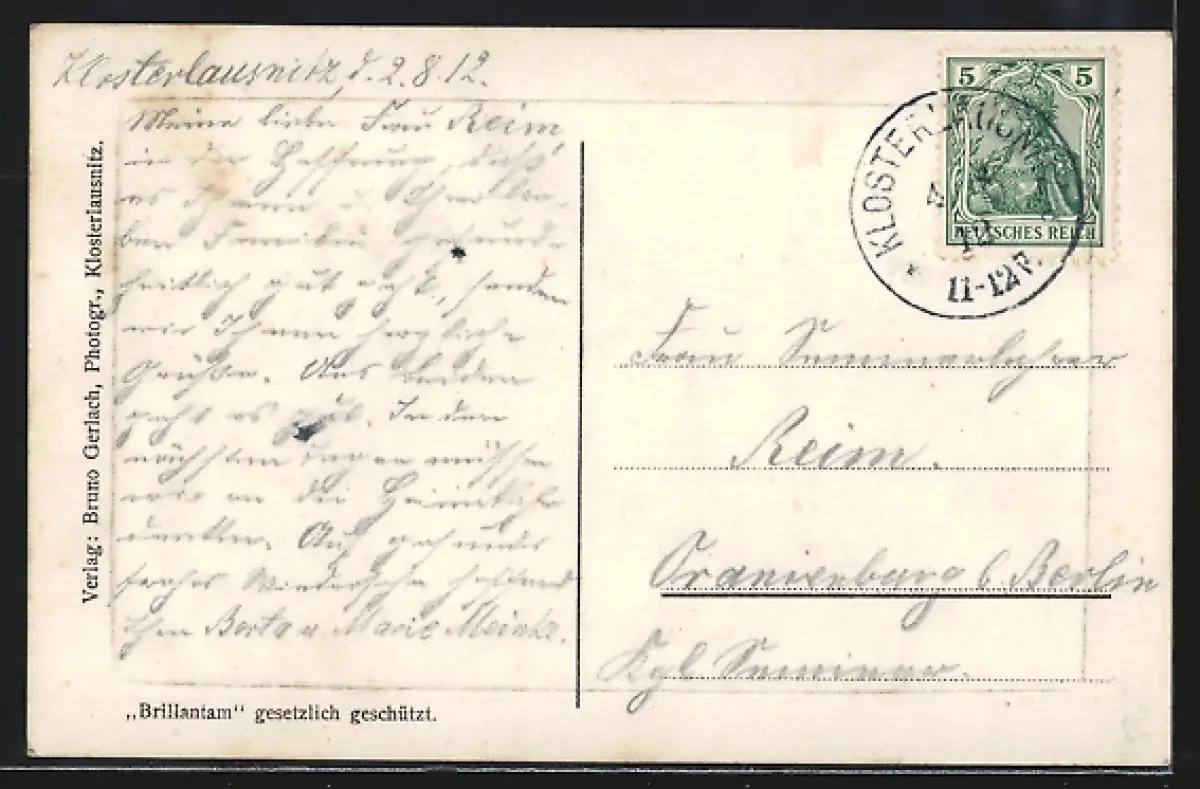 Klosterlausnitz, d. 2.8.12.
Meine liebe Frau Reim,
in der Hoffnung, daß
es Ihnen u. Ihrer lie-
ben Familie gesund-
heitlich gut geht, senden
wir Ihnen herzliche
Grüße. Uns beiden
geht es gut. In den
nächsten Tagen müssen
wir an die Heimkehr
denken. Auf gesundes
frohes Wiedersehn hoffend
Ihre Berta u. Marie
Verlag: Bruno Gerlach, Photogr., Klosterlausnitz.
„Brillantam“ gesetzlich geschützt.
5 5
DEUTSCHES REICH
* KLOSTERLAUSNITZ
12
11-12 V.
Frau Seminarlehrer
Reim.
Oranienburg b. Berlin
Kgl. Seminar.